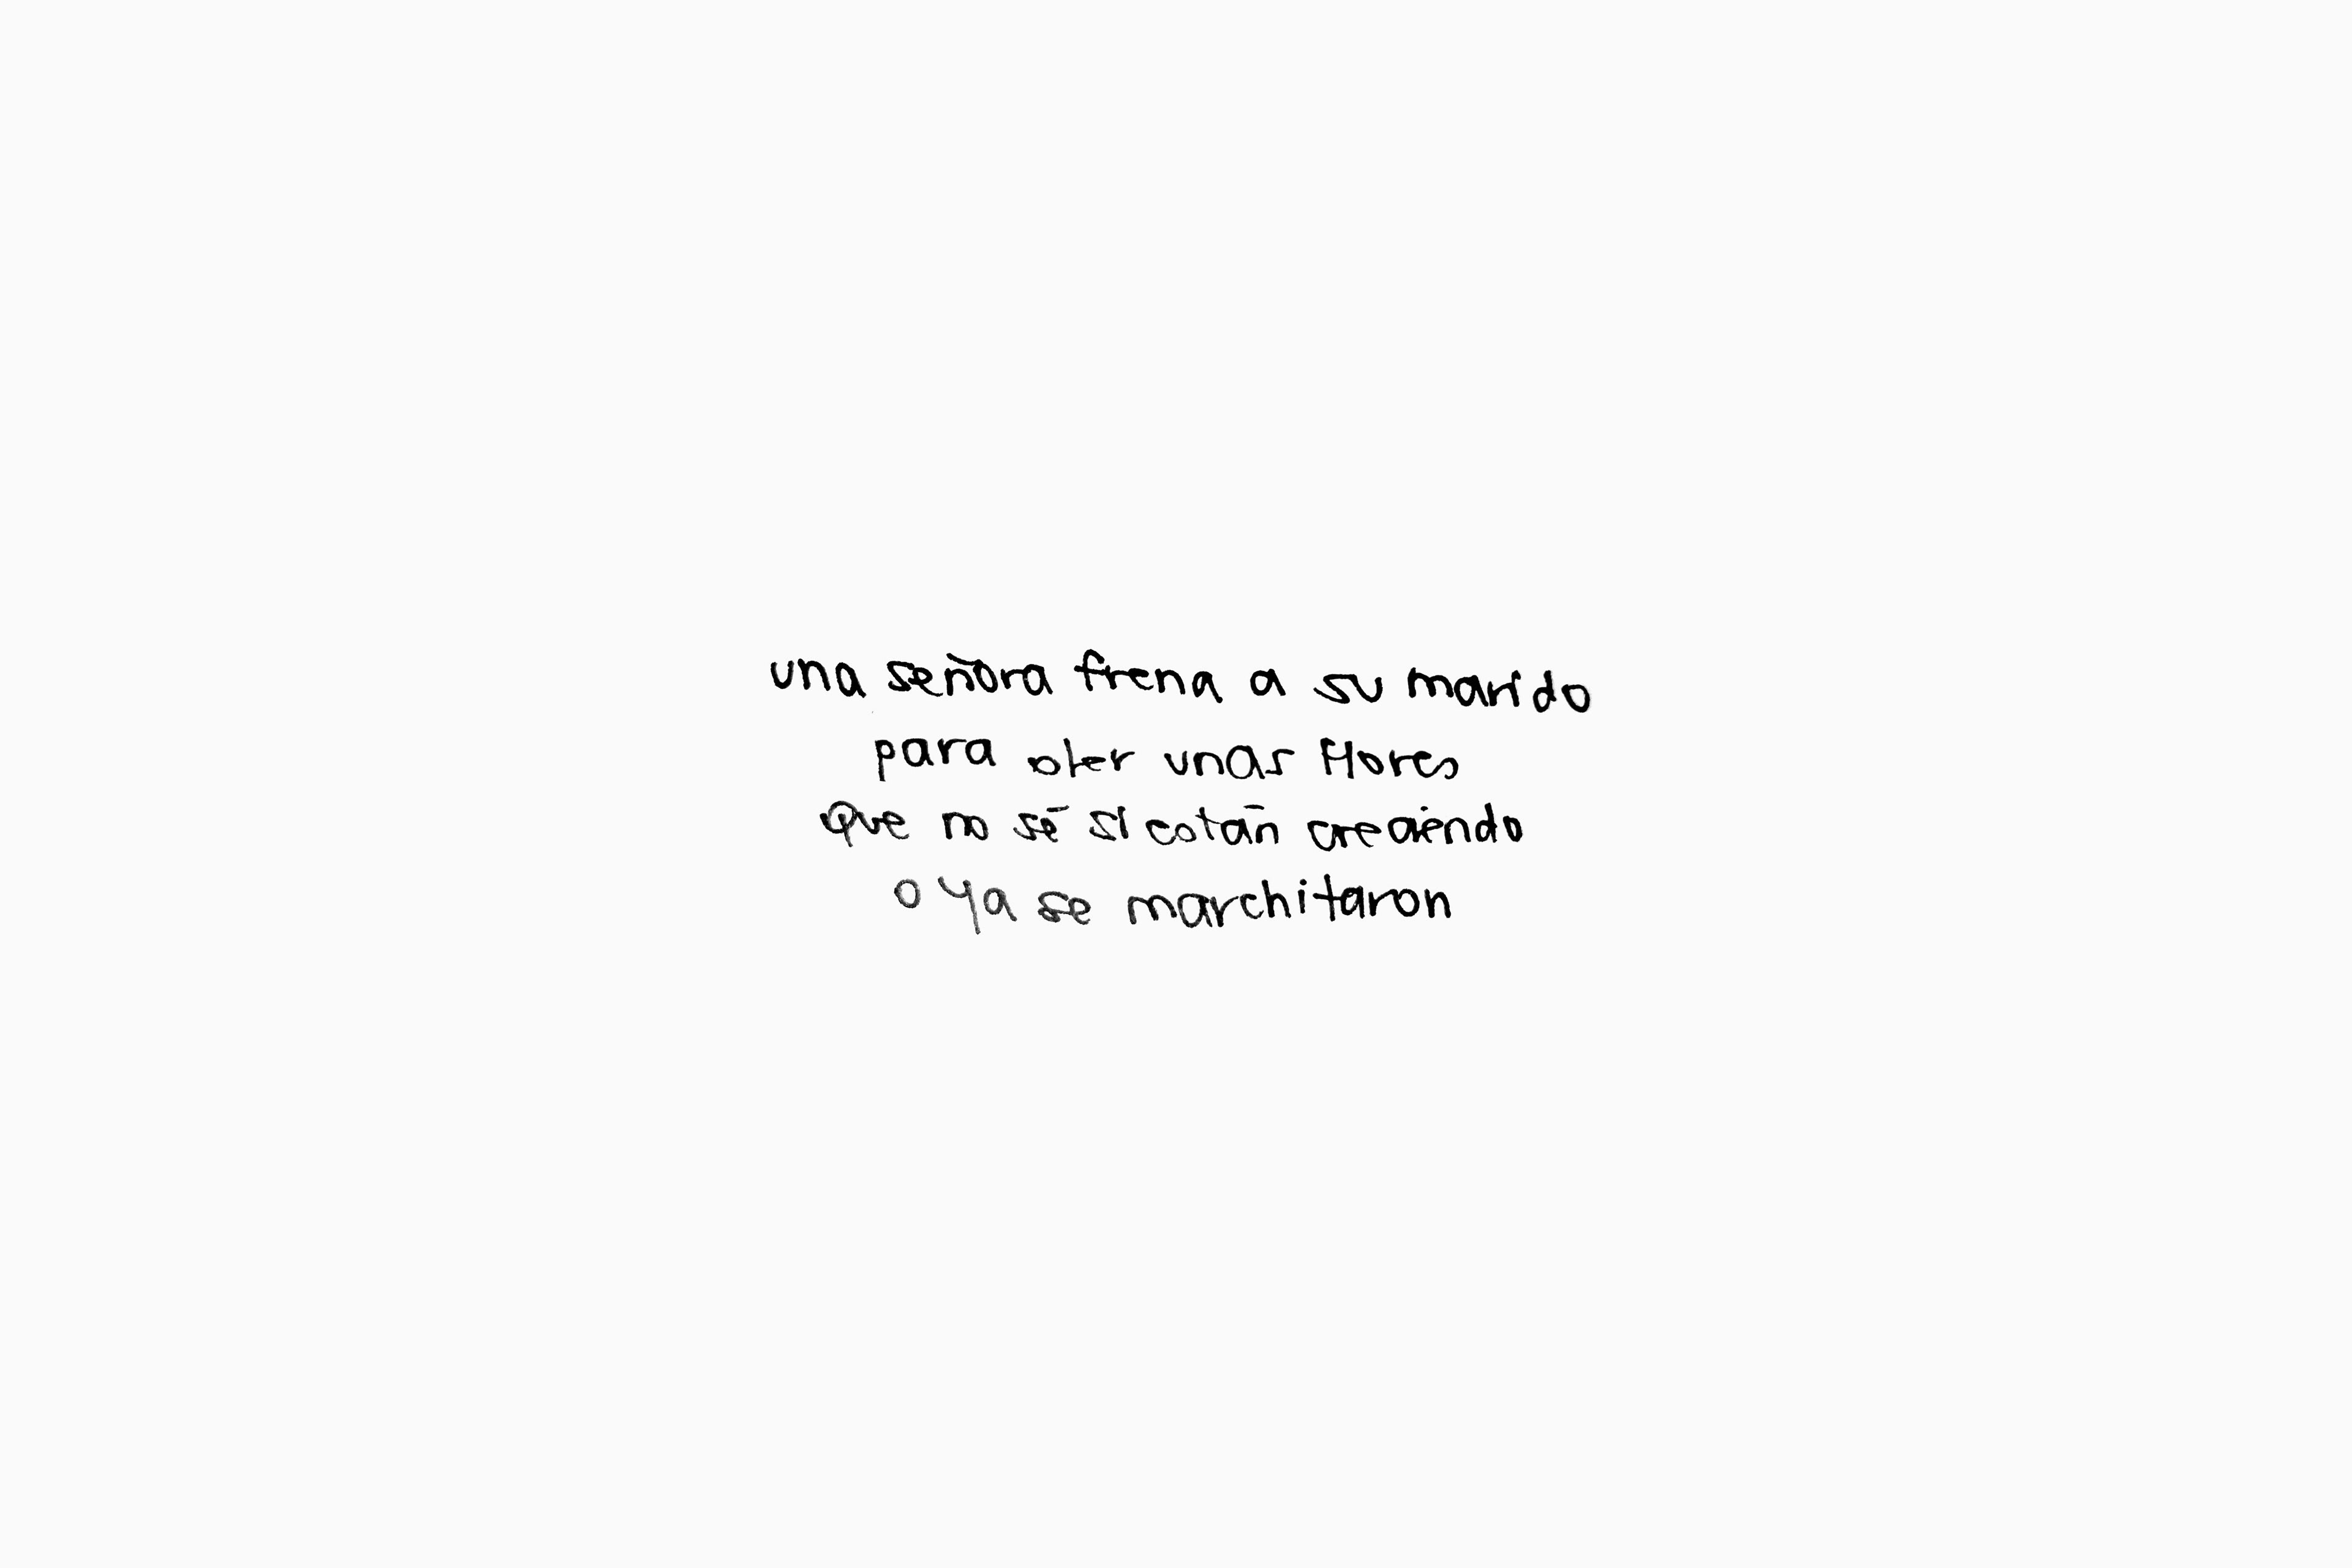 una señora frena a su marido
para oler unas flores
que no sé si están creciendo
o ya se marchitaron